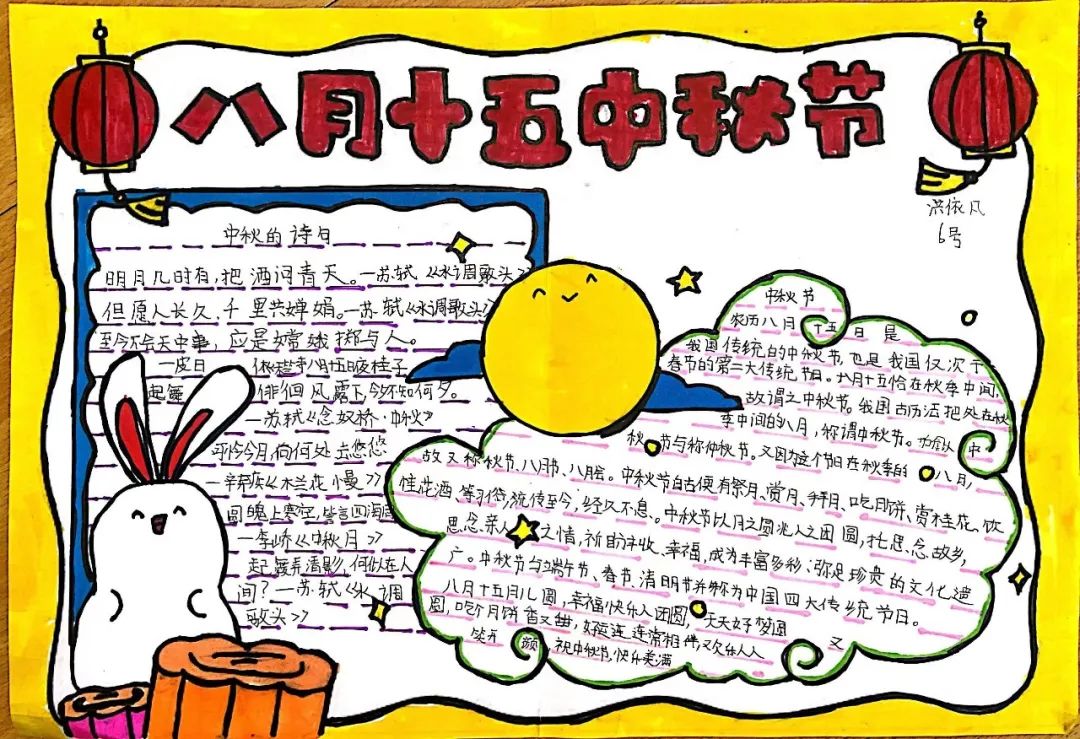 八月十五中秋节
洪依凡
6号
中秋的诗句
明月几时有,把酒问青天。—苏轼《水调歌头》
但愿人长久,千里共婵娟。—苏轼《水调歌头》
至今不会天中事,应是嫦娥掷与人。
—皮日休《天竺寺八月十五日夜桂子》
起舞徘徊风露下,今夕不知何夕。
—苏轼《念奴桥·中秋》
可怜今月,向何处去悠悠
—辛弃疾《木兰花慢》
圆魄上寒空,皆言四海同
—李峤《中秋月》
起舞弄清影,何似在人
间?—苏轼《水调
歌头》
中秋节
农历八月十五日是
我国传统的中秋节,也是我国仅次于
春节的第二大传统节日。八月十五恰在秋季中间,
故谓之中秋节。我国古历法把处在秋
季中间的八月,称谓中秋节。
秋节与称仲秋节。又因为这个节日在秋季的八月,
故又称秋节、八月节、八月会。中秋节自古便有祭月、赏月、拜月、吃月饼、赏桂花、饮
桂花酒、等习俗,流传至今,经久不息。中秋节以月之圆兆人之团圆,
思念亲人之情,祈盼丰收、幸福,成为丰富多彩、弥足珍贵的文化遗
广。中秋节与端午节、春节、清明节并称为中国四大传统节日。
八月十五月儿圆,幸福快乐人团圆,天天好梦圆
圆,吃个月饼香又甜,好运连连常相伴,又欢乐人人
笑开颜,祝中秋节,快乐美满